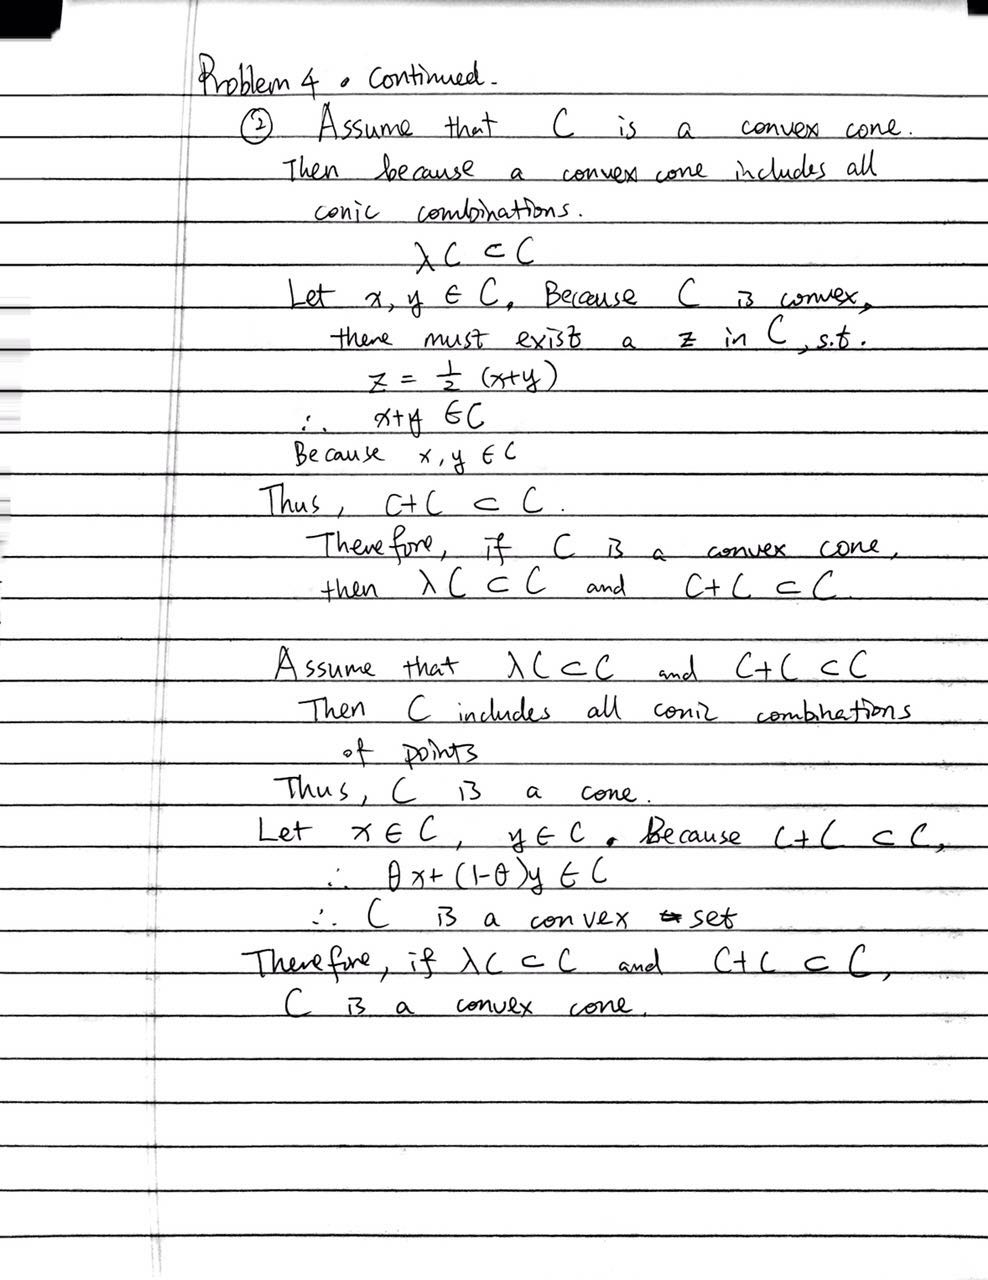 Problem 4. Continued.
② Assume that C is a convex cone.
Then because a convex cone includes all
conic combinations.
λC ⊂ C
Let x, y ∈ C. Because C is convex,
there must exist a z in C, s.t.
z = 1/2 (x+y)
∴ x+y ∈ C
Because x, y ∈ C
Thus, C+C ⊂ C.
Therefore, if C is a convex cone,
then λC ⊂ C and C+C ⊂ C.
Assume that λC ⊂ C and C+C ⊂ C
Then C includes all conic combinations
of points
Thus, C is a cone.
Let x ∈ C, y ∈ C. Because C+C ⊂ C,
∴ θx + (1-θ)y ∈ C
∴ C is a convex set
Therefore, if λC ⊂ C and C+C ⊂ C,
C is a convex cone.